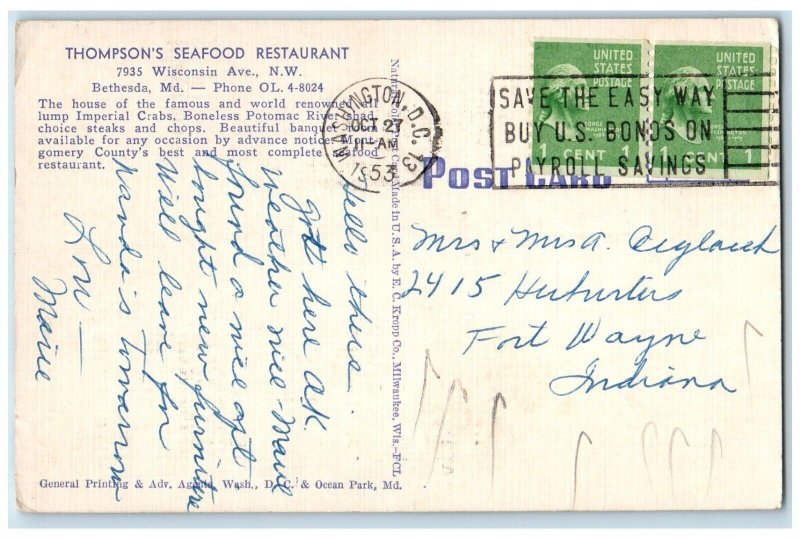 THOMPSON'S SEAFOOD RESTAURANT
7935 Wisconsin Ave., N.W.
Bethesda, Md. — Phone OL. 4-8024
The house of the famous and world renowned all
lump Imperial Crabs, Boneless Potomac River shad,
choice steaks and chops. Beautiful banquet
available for any occasion by advance notice. Mont-
gomery County's best and most complete seafood
restaurant.
WASHINGTON, D.C. 13
OCT 27
11-AM
1953
SAVE THE EASY WAY
BUY U.S. BONDS ON
PAYROLL SAVINGS
UNITED
STATES
POSTAGE
1 CENT 1
UNITED
STATES
POSTAGE
1 CENT 1
POST CARD
Made in U.S.A. by E. C. Kropp Co., Milwaukee, Wis.—FCL
Hello there.
got here o.k.
weather nice
found a nice apt
bought new furniture
Will leave for
tomorrow
Mrs & Mrs A.
2415
Fort Wayne
Indiana
General Printing & Adv. Agents, Wash., D. C. & Ocean Park, Md.